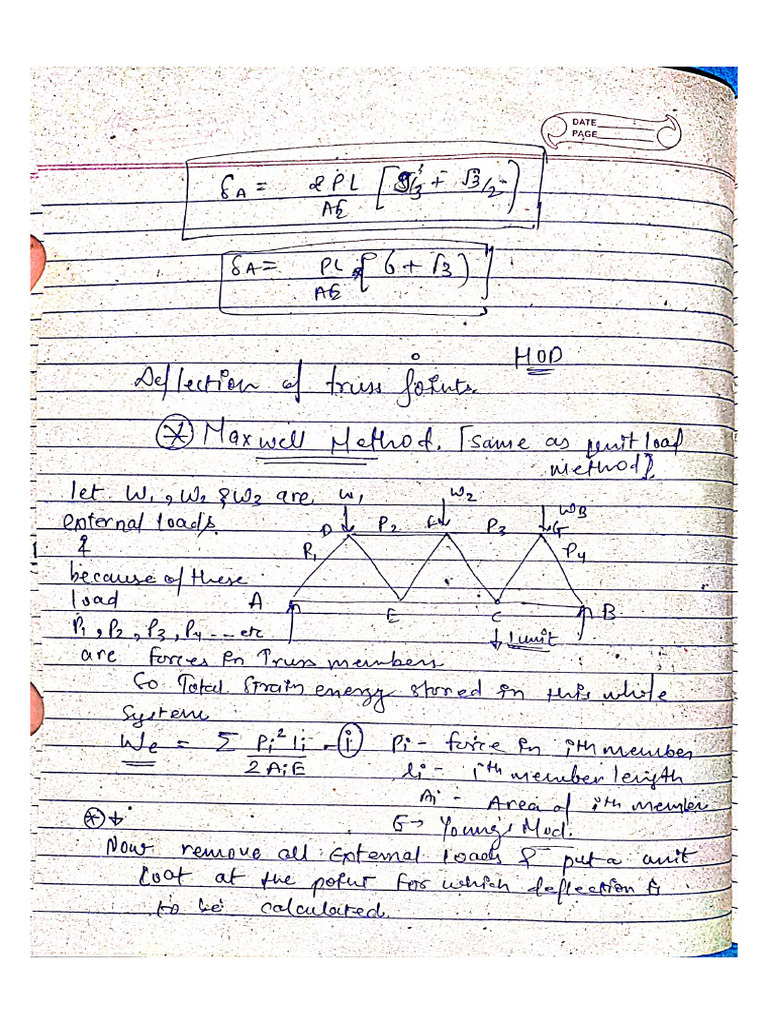 DATE
PAGE
δA = 2PL/AE [ /3 + √3/2 ]
δA = PL/AE { 6 + √3 }
HOD
Deflection of truss joints.
* Maxwell Method. [same as unit load
method].
let W1, W2 & W3 are
external loads.
&
because of these
load
P1, P2, P3, P4 --- etc
W1
W2
W3
D
P2
F
P3
G
P1
P4
A
E
C
B
1 unit
are forces in Truss members
So Total strain energy stored in this whole
system
We = Σ Pi² li / 2AiE - (i)
Pi - force in ith member
li - ith member length
Ai - Area of ith member
E → Young's Mod.
* ↓
Now remove all external loads & put a unit
loat at the point for which deflection is
to be calculated.